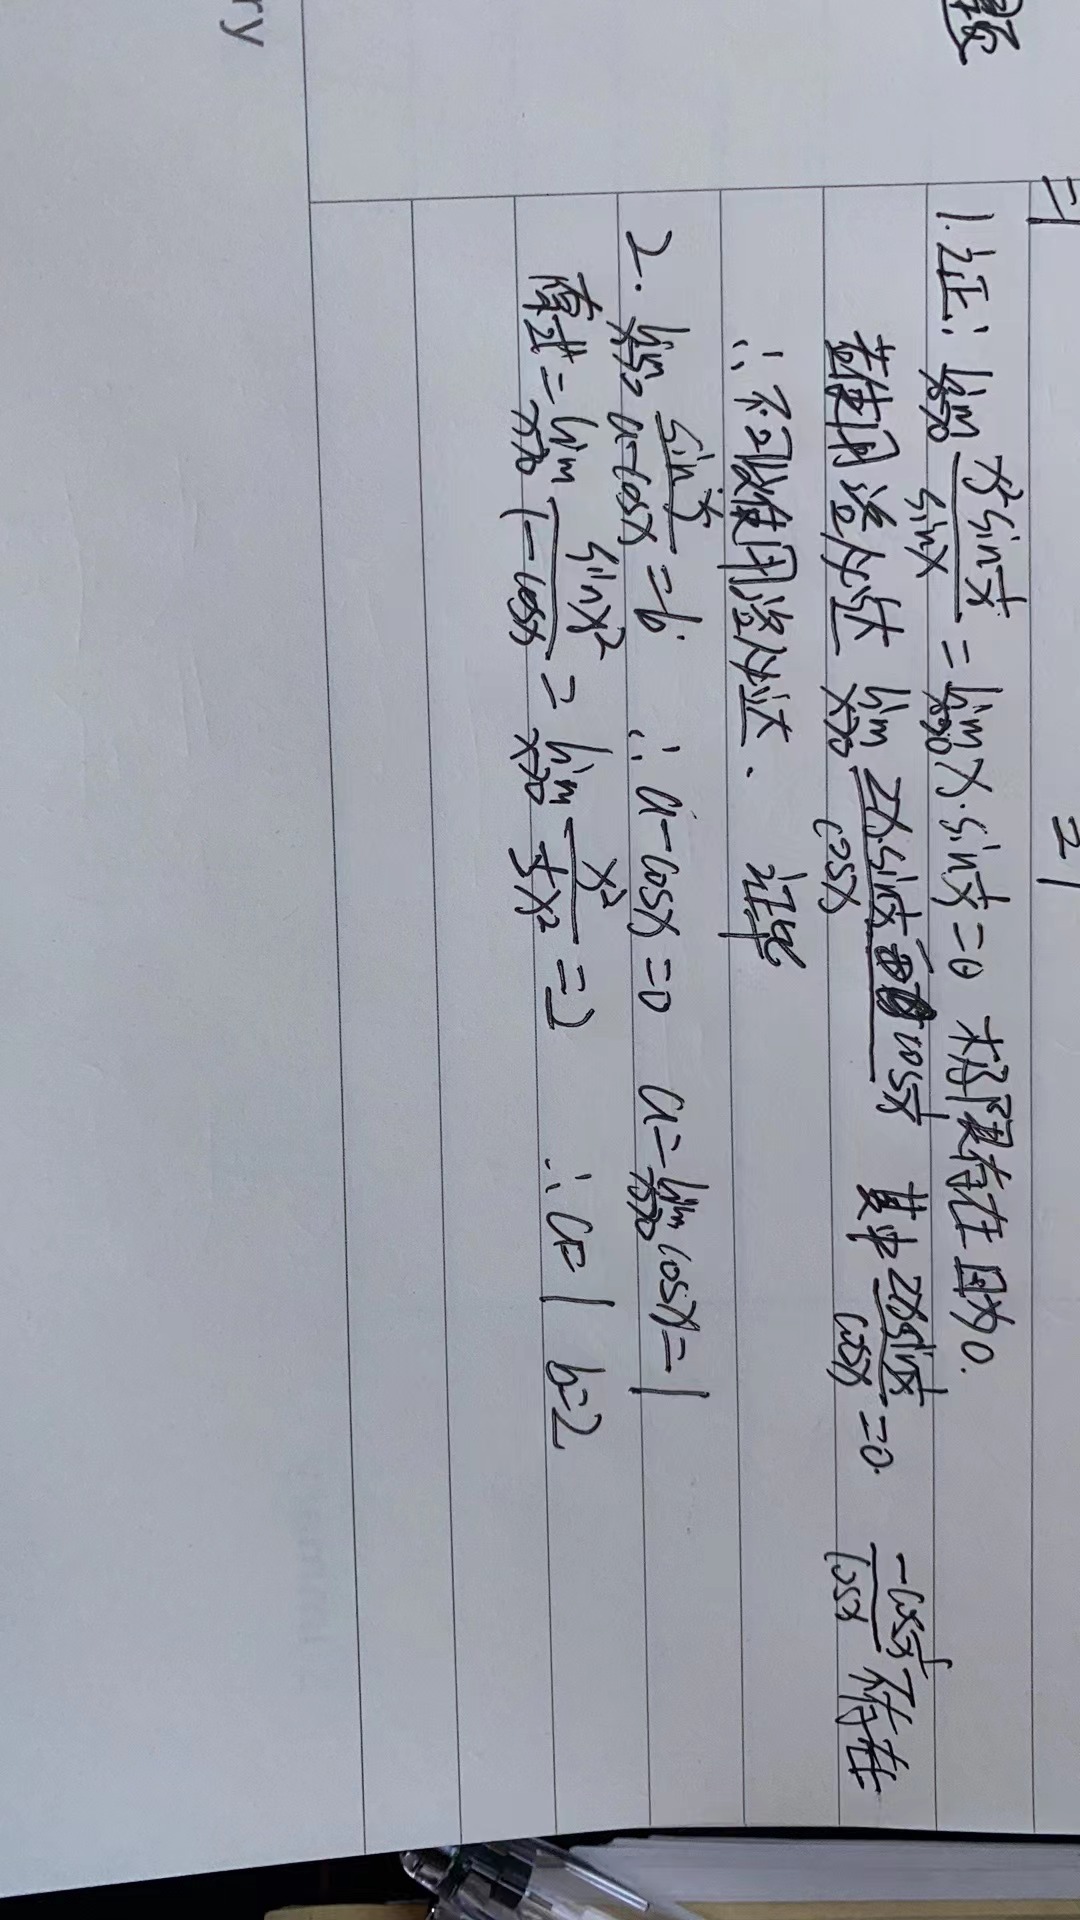 题
三、
1. 证: lim x→0 x²sin 1/x / sinx = lim x→0 x·sin 1/x = 0 极限存在且为0.
若使用洛必达 lim x→0 2x·sin 1/x - cos 1/x / cosx 其中 2xsin 1/x / cosx = 0. -cos 1/x / cosx 不存在
∴ 不可以使用洛必达. 证毕
2. lim x→0 sin x² / a-cosx = b ∴ a-cosx=0 a= lim x→0 cosx=1
原式= lim x→0 sinx² / 1-cosx = lim x→0 x² / ½x² =2 ∴ a=1 b=2
ry